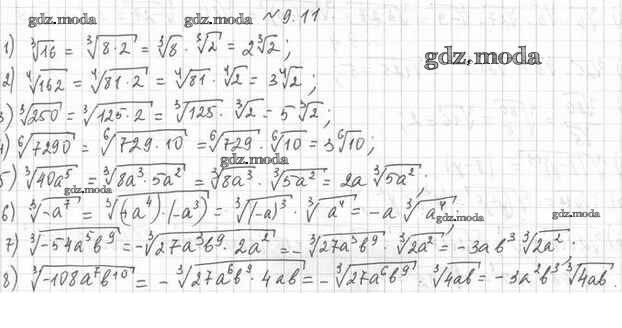 gdz.moda gdz.moda №9.11
1) ∛16 = ∛(8·2) = ∛8 · ∛2 = 2∛2;
gdz.moda
2) ⁴√162 = ⁴√(81·2) = ⁴√81 · ⁴√2 = 3⁴√2;
3) ∛250 = ∛(125·2) = ∛125 · ∛2 = 5∛2;
4) ⁶√7290 = ⁶√(729·10) = ⁶√729 · ⁶√10 = 3⁶√10;
gdz.moda
5) ∛(40a⁵) = ∛(8a³·5a²) = ∛(8a³) · ∛(5a²) = 2a∛(5a²);
gdz.moda
6) ∛(-a⁷) = ∛((a⁴)·(-a³)) = ∛((-a)³) · ∛(a⁴) = -a∛(a⁴);
gdz.moda gdz.moda
7) ∛(-54a⁵b⁹) = -∛(27a³b⁹·2a²) = -∛(27a³b⁹) · ∛(2a²) = -3ab³∛(2a²);
8) ∛(-108a⁷b¹⁰) = -∛(27a⁶b⁹·4ab) = -∛(27a⁶b⁹) · ∛(4ab) = -3a²b³∛(4ab).